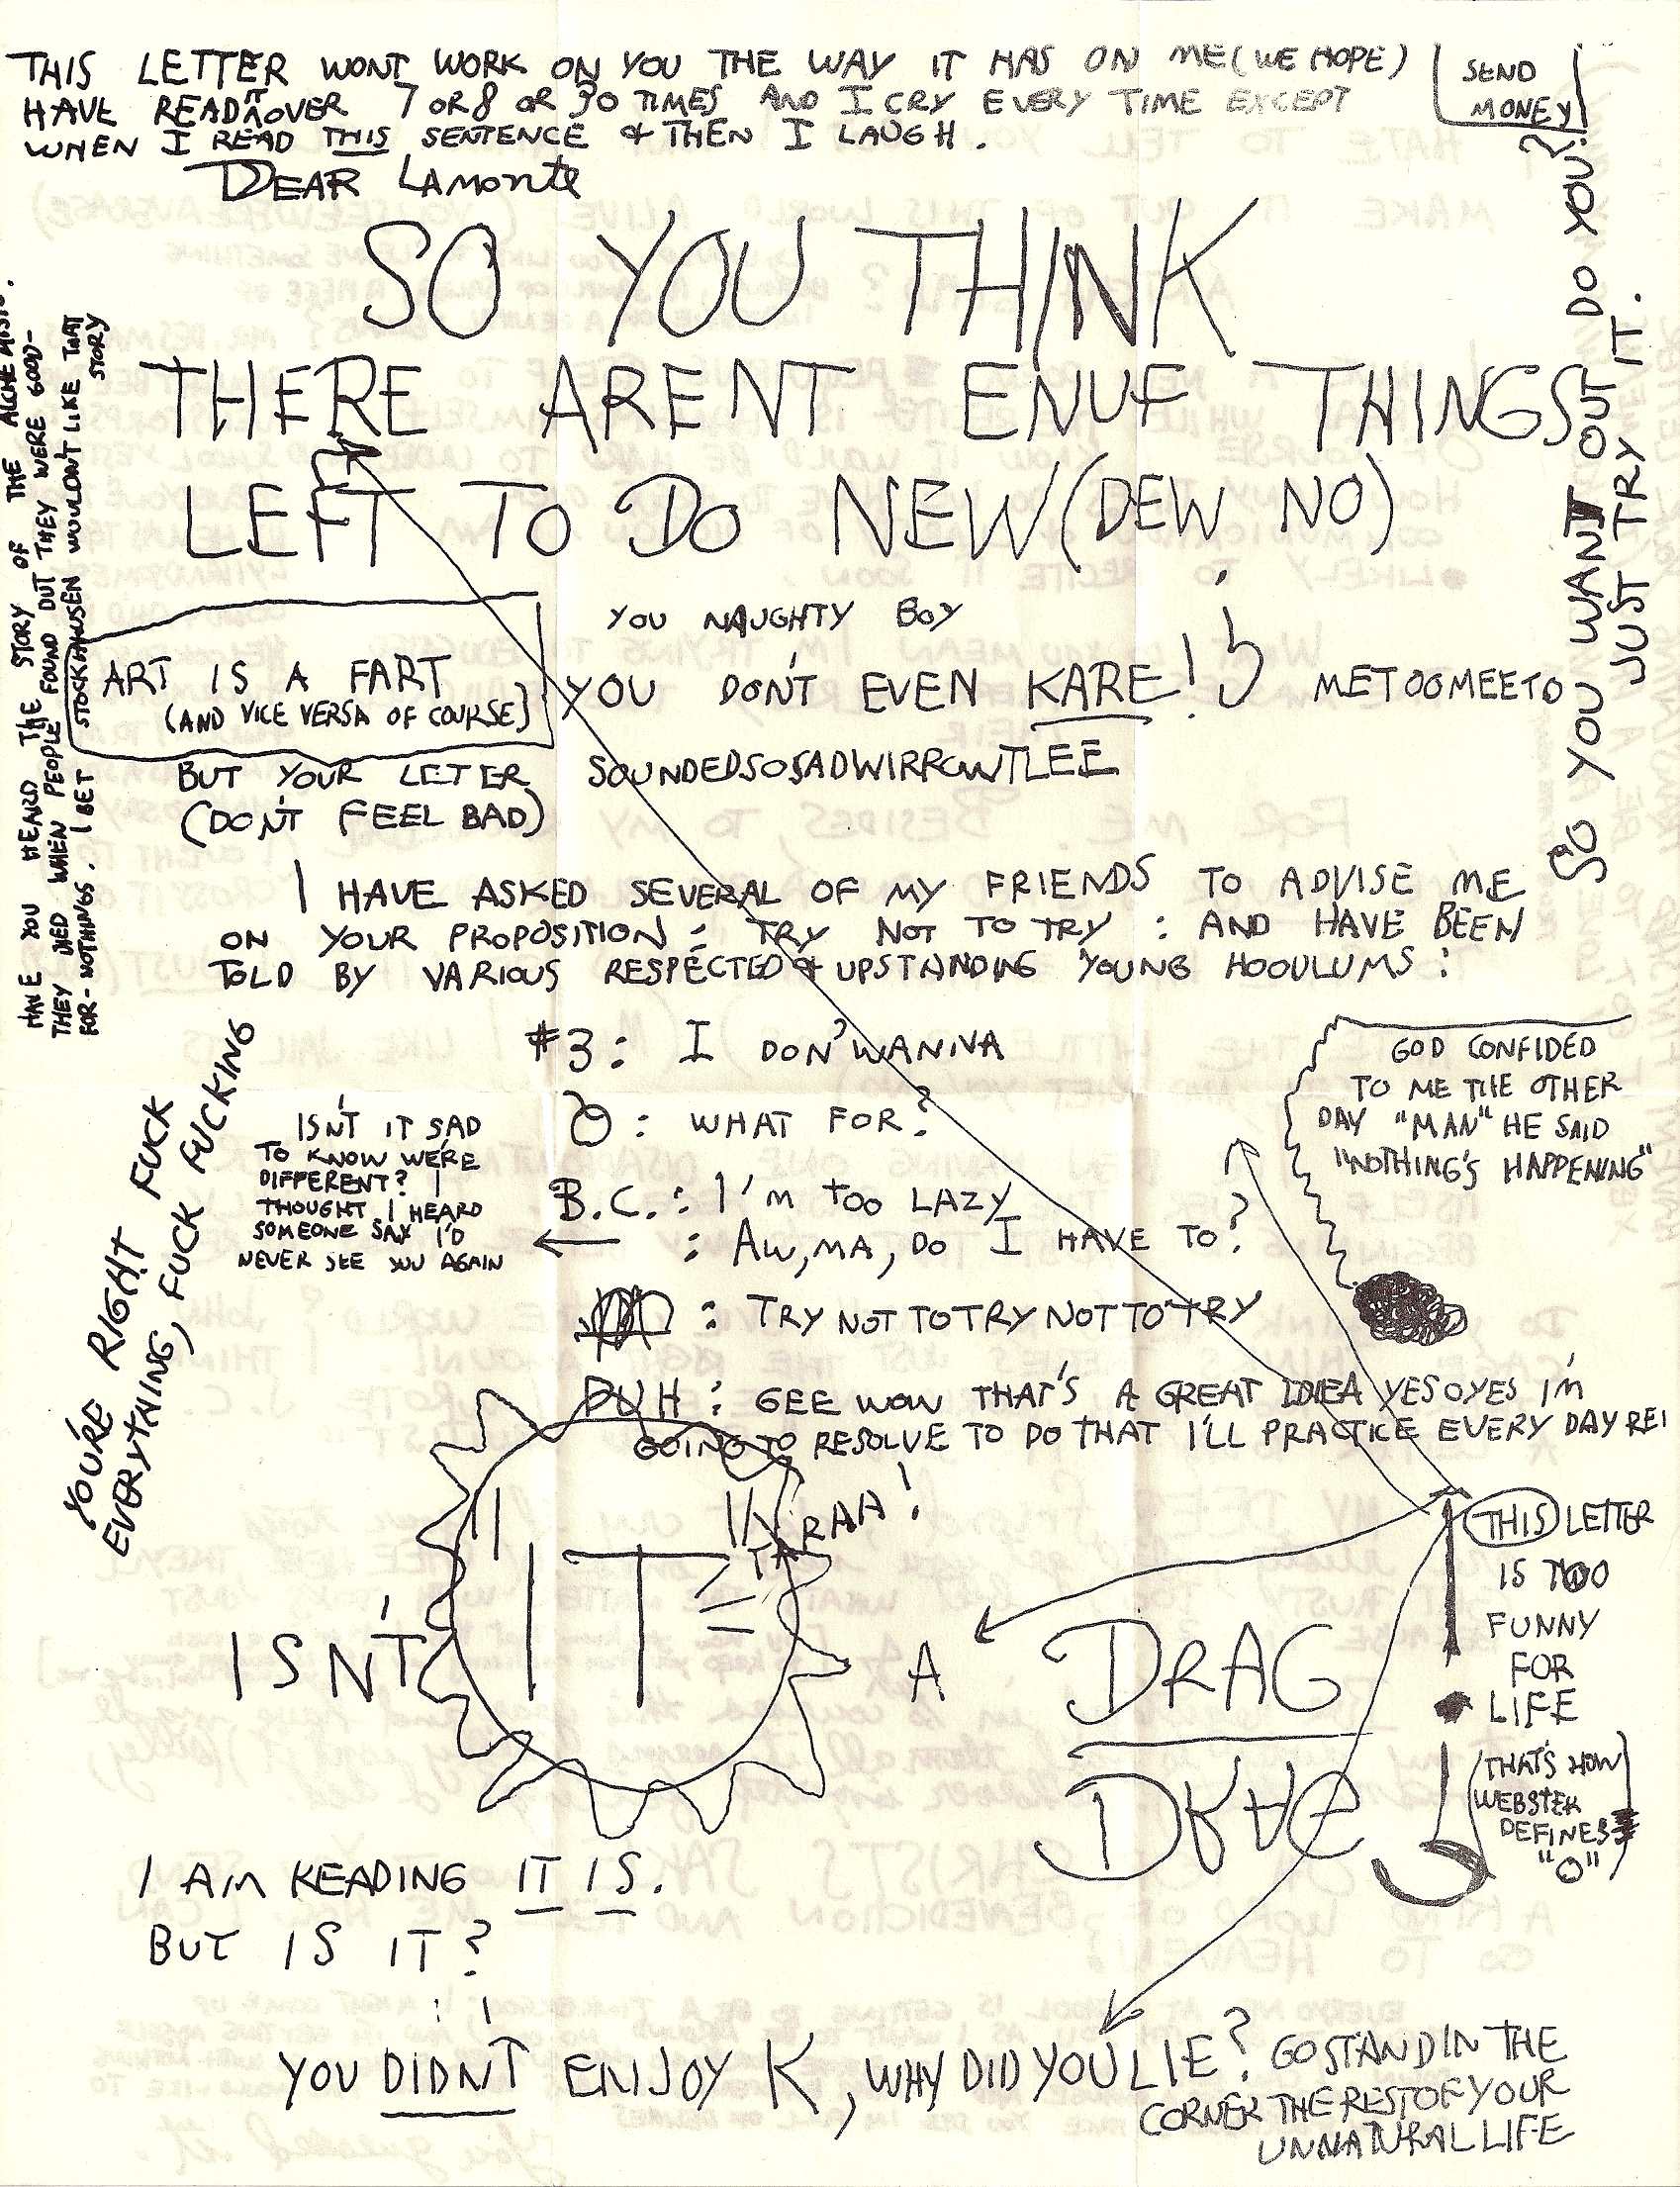 THIS LETTER WONT WORK ON YOU THE WAY IT HAS ON ME (WE HOPE)
HAVE READ IT OVER 7 OR 8 OR 30 TIMES AND I CRY EVERY TIME EXCEPT
WHEN I READ THIS SENTENCE & THEN I LAUGH.
SEND
MONEY
DEAR LAMONTE
SO YOU THINK
THERE ARENT ENUF THINGS
LEFT TO DO NEW (DEW NO)
YOU NAUGHTY BOY
YOU DON'T EVEN KARE! METOOMEETO
SO YOU WANT OUT DO YOU?
JUST TRY IT.
HAVE YOU HEARD THE STORY OF THE ALCHEMISTS.
THEY DIED WHEN PEOPLE FOUND OUT THEY WERE GOOD-
FOR-NOTHINGS. I BET STOCKHAUSEN WOULDN'T LIKE THAT
STORY
ART IS A FART
(AND VICE VERSA OF COURSE)
BUT YOUR LETTER SOUNDEDSOSADWIRROWTLEE
(DON'T FEEL BAD)
I HAVE ASKED SEVERAL OF MY FRIENDS TO ADVISE ME
ON YOUR PROPOSITION: TRY NOT TO TRY: AND HAVE BEEN
TOLD BY VARIOUS RESPECTED & UPSTANDING YOUNG HOODLUMS:
#3: I DON'WANNA
: WHAT FOR?
B.C.: I'M TOO LAZY
: AW, MA, DO I HAVE TO?
: TRY NOT TOTRY NOT TO TRY
DUH: GEE WOW THAT'S A GREAT IDEA YESOYES I'M
GOING TO RESOLVE TO DO THAT I'LL PRACTICE EVERY DAY REI
GOD CONFIDED
TO ME THE OTHER
DAY "MAN" HE SAID
"NOTHING'S HAPPENING"
ISN'T IT SAD
TO KNOW WE'RE
DIFFERENT? I
THOUGHT I HEARD
SOMEONE SAY I'D
NEVER SEE YOU AGAIN
YOU'RE RIGHT FUCK
EVERYTHING, FUCK FUCKING
TARRAA!
ISN'T "IT" A DRAG
DRAG
THIS LETTER
IS TOO
FUNNY
FOR
LIFE
(THAT'S HOW
WEBSTER
DEFINES
"O")
I AM READING IT IS.
BUT IS IT?
YOU DIDN'T ENJOY K, WHY DID YOU LIE? GO STAND IN THE
CORNER THE REST OF YOUR
UNNATURAL LIFE